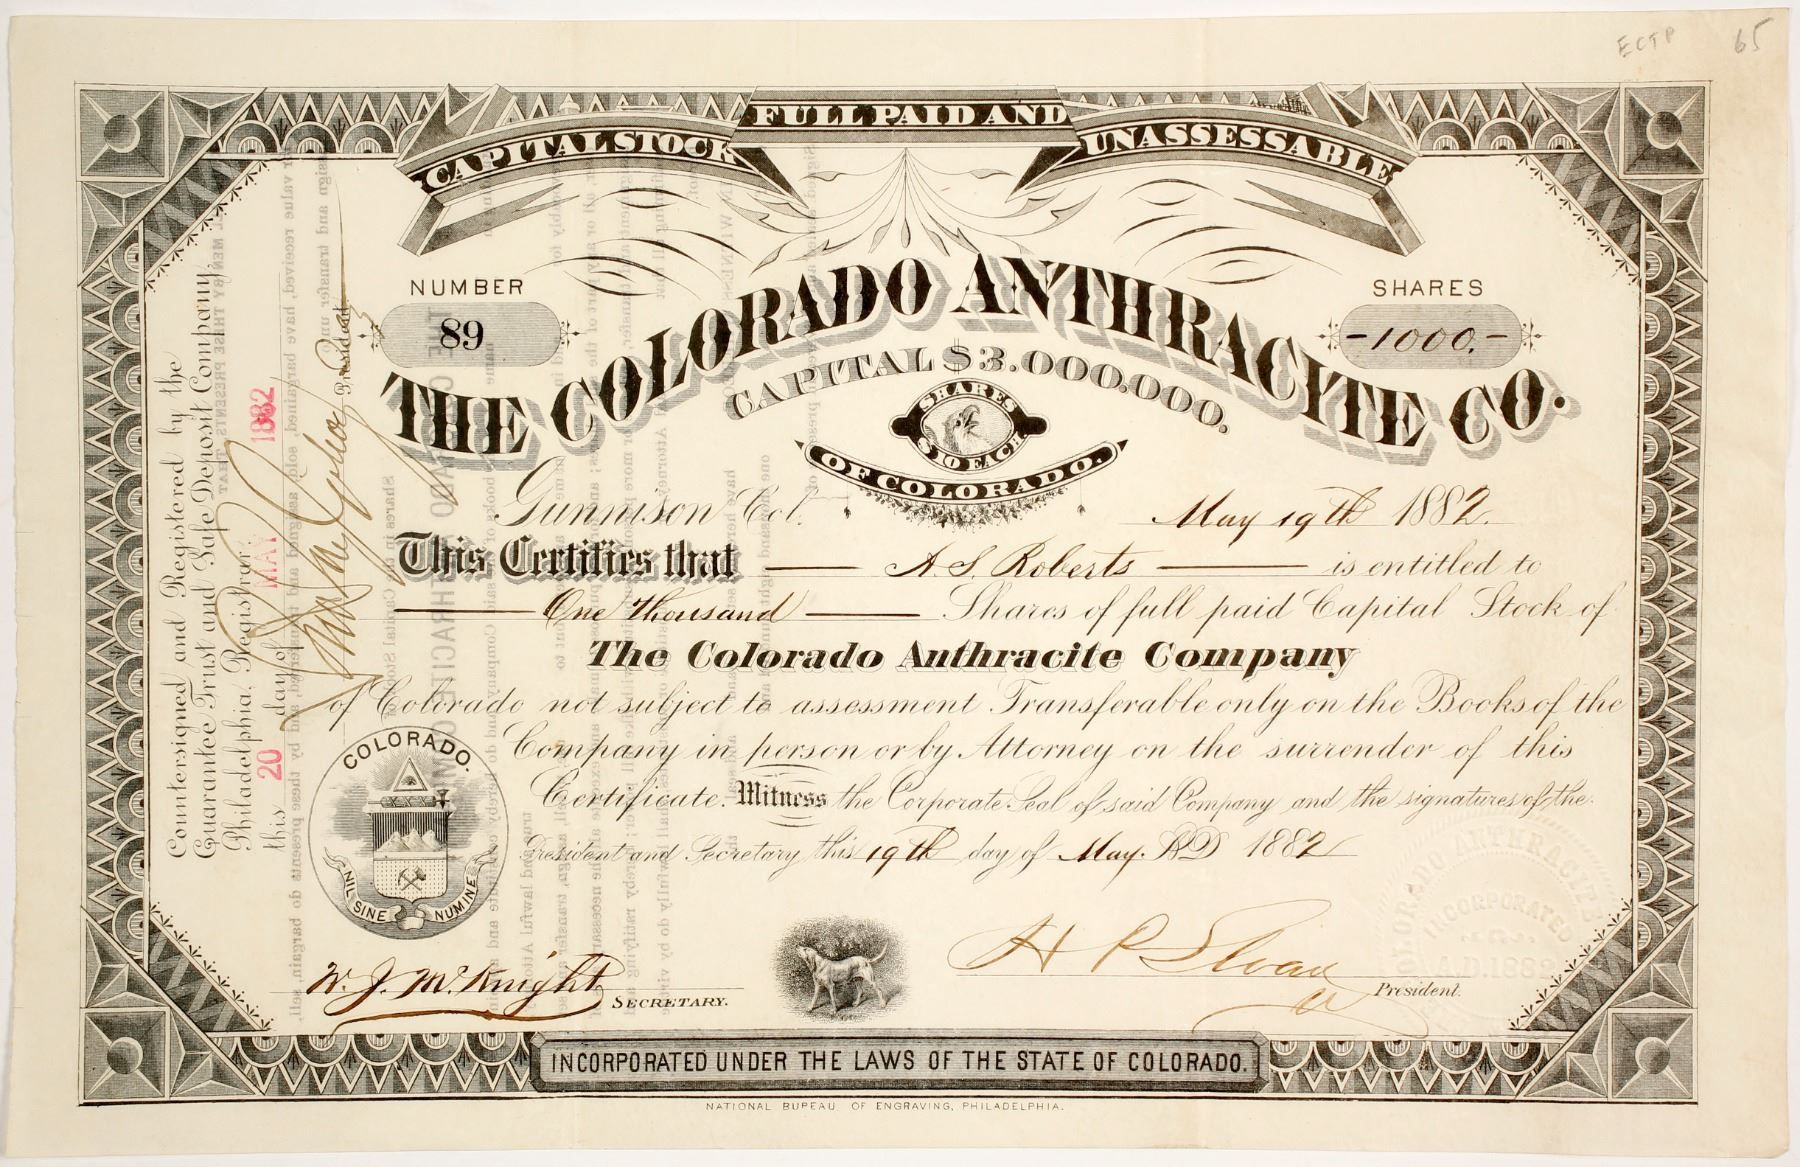 ECTP 65
CAPITAL STOCK FULL PAID AND UNASSESSABLE
NUMBER
89
SHARES
-1000.-
THE COLORADO ANTHRACITE CO.
CAPITAL $3.000.000.
SHARES
$10 EACH
OF COLORADO.
Gunnison Col. May 19th 1882.
This Certifies that A. S. Roberts is entitled to
One Thousand Shares of full paid Capital Stock of
The Colorado Anthracite Company
of Colorado not subject to assessment Transferable only on the Books of the
Company in person or by Attorney on the surrender of this
Certificate. Witness the Corporate Seal of said Company and the signatures of the
President and Secretary this 19th day of May. AD 1882
COLORADO.
NIL SINE NUMINE
W. J. McKnight
SECRETARY.
H P Sloan
President.
COLORADO ANTHRACITE
INCORPORATED
A.D. 1882
INCORPORATED UNDER THE LAWS OF THE STATE OF COLORADO.
NATIONAL BUREAU OF ENGRAVING, PHILADELPHIA.
Countersigned and Registered by the
Guarantee Trust and Safe Deposit Company,
Philadelphia, Registrar
this 20 day of MAY 1882
President